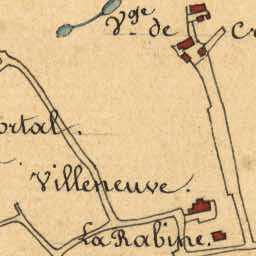 Vge de Cr
ortal.
Villeneuve.
La Rabine.